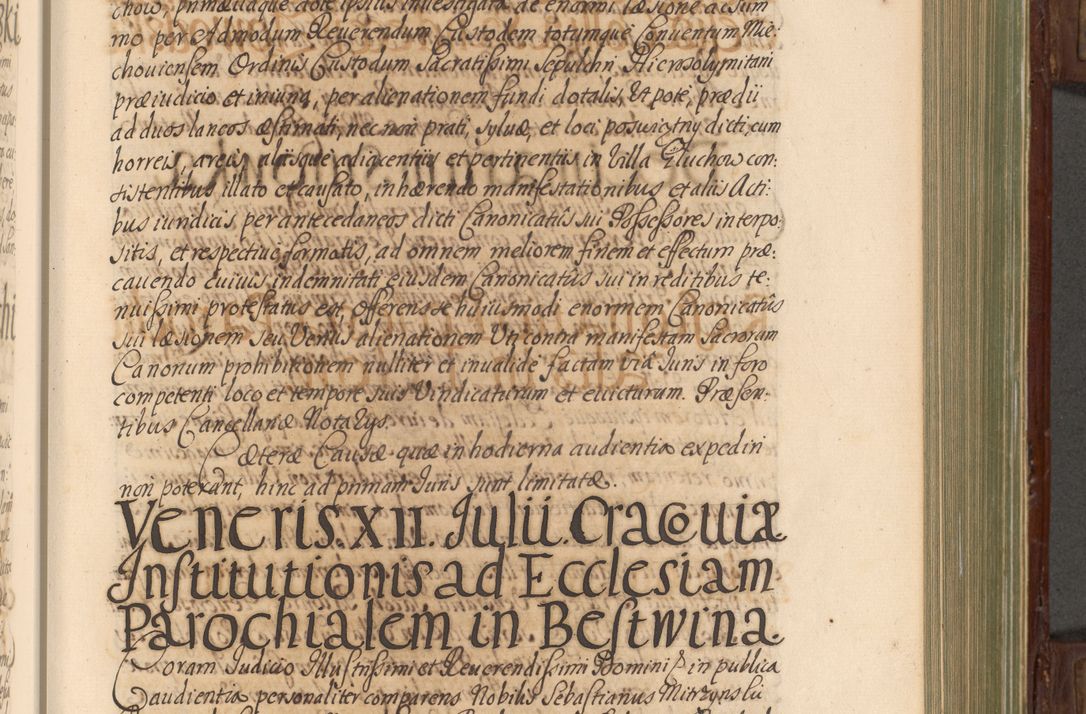 chow, primævaque dote ipsius investigata de enormi læsione ac sum
mo per Admodum Reverendum Custodem totumque Conventum Mie:
choviensem Ordinis Custodum Sacratissimi Sepulchri Hierosolymitani
præiudicio et iniuria, per alienationem fundi dotalis, Ut pote, prædii
ad duos laneos æstimati, nec non prati, sylvæ, et loci poswigtny dicti, cum
horreis, areis, aliisque adiacentiis et pertinentiis in Villa Gluchow con:
sistentibus illato et causato, inhærendo manifestationibus et aliis Acti:
bus iuridicis per antecedaneos dicti Canonicatûs sui Possessores interpo:
sitis, et respective formatis, ad omnem meliorem finem et effectum præ:
cavendo cuivis indemnitati eiusdem Canonicatûs sui in reditibus te:
nuissimi protestatus est, offerens se huiusmodi enormem Canonicatûs
sui læsionem seu Verius alienationem Uti contra manifestam Sacrorum
Canonum prohibitionem nulliter et invalide factam viâ Iuris in foro
competenti loco et tempore suis Vindicaturum et evicturum. Præsen:
tibus Cancellariæ Notarys.
Cæteræ Causæ quæ in hodierna audientia expediri
non poterant, hinc ad primam Iuris sunt limitatæ.
Veneris. XII. Iulii Cracoviæ
Institutionis ad Ecclesiam
Parochialem in Bestwina
Coram Iudicio Illustrissimi et Reverendissimi Domini in publica
audientia personaliter comparens Nobilis Sebastianus